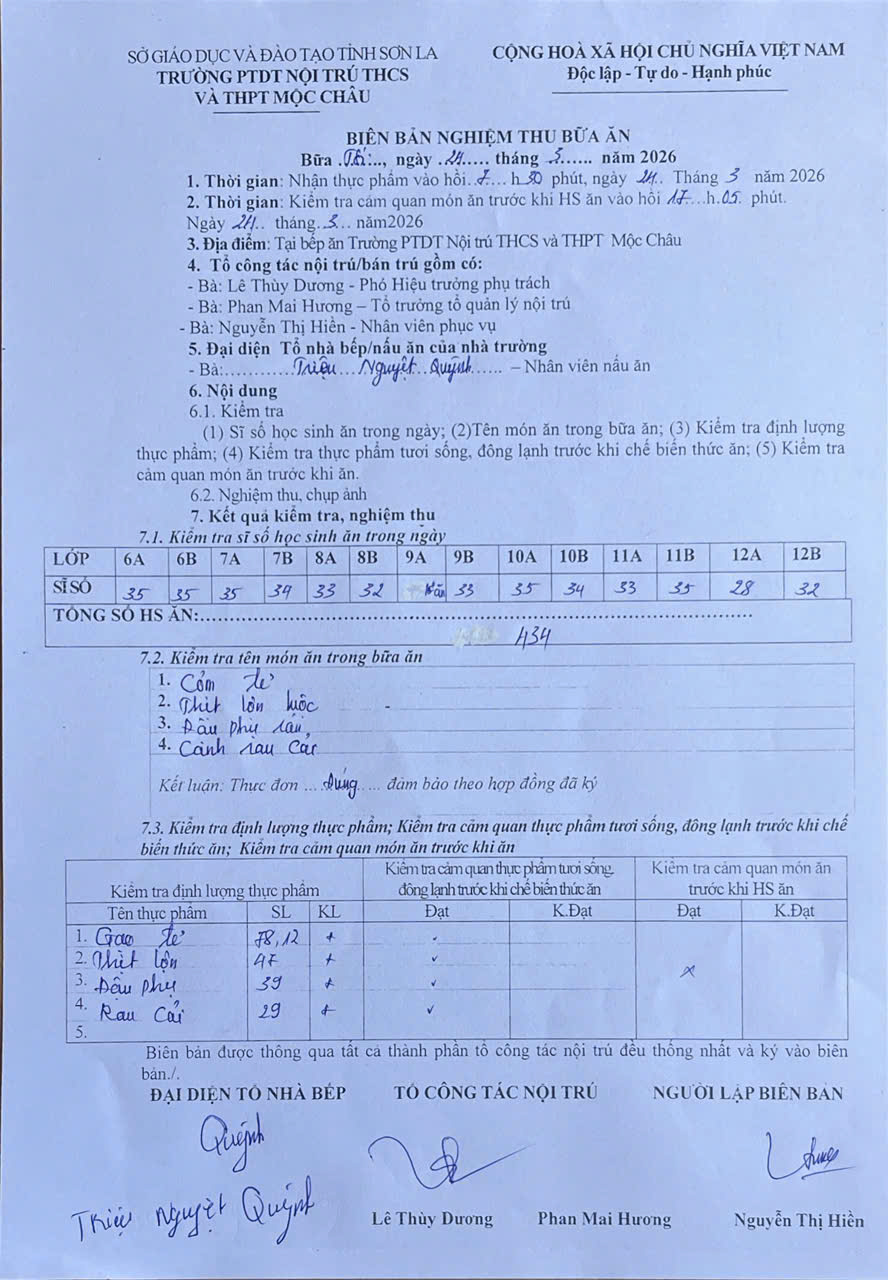 SỞ GIÁO DỤC VÀ ĐÀO TẠO TỈNH SƠN LA
TRƯỜNG PTDT NỘI TRÚ THCS
VÀ THPT MỘC CHÂU
CỘNG HOÀ XÃ HỘI CHỦ NGHĨA VIỆT NAM
Độc lập - Tự do - Hạnh phúc
BIÊN BẢN NGHIỆM THU BỮA ĂN
Bữa .Tối..., ngày .24..... tháng .3...... năm 2026
1. Thời gian: Nhận thực phẩm vào hồi..7.... h30 phút, ngày 24.. Tháng 3 năm 2026
2. Thời gian: Kiểm tra cảm quan món ăn trước khi HS ăn vào hồi 17...h.05. phút.
Ngày 24.. tháng..3... năm2026
3. Địa điểm: Tại bếp ăn Trường PTDT Nội trú THCS và THPT Mộc Châu
4. Tổ công tác nội trú/bán trú gồm có:
- Bà: Lê Thùy Dương - Phó Hiệu trưởng phụ trách
- Bà: Phan Mai Hương – Tổ trưởng tổ quản lý nội trú
- Bà: Nguyễn Thị Hiền - Nhân viên phục vụ
5. Đại diện Tổ nhà bếp/nấu ăn của nhà trường
- Bà:............Triệu...Nguyệt..Quỳnh...... – Nhân viên nấu ăn
6. Nội dung
6.1. Kiểm tra
(1) Sĩ số học sinh ăn trong ngày; (2)Tên món ăn trong bữa ăn; (3) Kiểm tra định lượng
thực phẩm; (4) Kiểm tra thực phẩm tươi sống, đông lạnh trước khi chế biến thức ăn; (5) Kiểm tra
cảm quan món ăn trước khi ăn.
6.2. Nghiệm thu, chụp ảnh
7. Kết quả kiểm tra, nghiệm thu
7.1. Kiểm tra sĩ số học sinh ăn trong ngày
LỚP 6A 6B 7A 7B 8A 8B 9A 9B 10A 10B 11A 11B 12A 12B
SĨ SỐ 35 35 35 34 33 32 33 35 34 33 35 28 32
TỔNG SỐ HS ĂN:........................................................................
434
7.2. Kiểm tra tên món ăn trong bữa ăn
1. Cơm tẻ
2. Thịt lợn luộc
3. Đậu phụ rán
4. Canh rau cải
Kết luận: Thực đơn ....đúng.... đảm bảo theo hợp đồng đã ký
7.3. Kiểm tra định lượng thực phẩm; Kiểm tra cảm quan thực phẩm tươi sống, đông lạnh trước khi chế
biến thức ăn; Kiểm tra cảm quan món ăn trước khi ăn
Kiểm tra định lượng thực phẩm
Kiểm tra cảm quan thực phẩm tươi sống,
đông lạnh trước khi chế biến thức ăn
Kiểm tra cảm quan món ăn
trước khi HS ăn
Tên thực phẩm SL KL Đạt K.Đạt Đạt K.Đạt
1. Gạo tẻ 78,12 + ✓
2. Thịt lợn 47 + ✓
3. Đậu phụ 39 + ✓ x
4. Rau cải 29 + ✓
5.
Biên bản được thông qua tất cả thành phần tổ công tác nội trú đều thống nhất và ký vào biên
bản./.
ĐẠI DIỆN TỔ NHÀ BẾP TỔ CÔNG TÁC NỘI TRÚ NGƯỜI LẬP BIÊN BẢN
Quỳnh
Triệu Nguyệt Quỳnh
Lê Thùy Dương Phan Mai Hương Nguyễn Thị Hiền